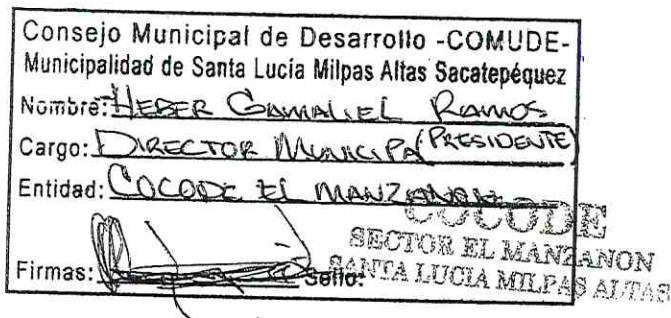 Consejo Municipal de Desarrollo -COMUDE-
Municipalidad de Santa Lucía Milpas Altas Sacatepéquez
Nombre: HEBER GAMALIEL RAMOS
Cargo: DIRECTOR MUNICIPA (PRESIDENTE)
Entidad: COCODE EL MANZANON
COCODE
SECTOR EL MANZANON
SANTA LUCIA MILPAS ALTAS
Firmas: Sello: